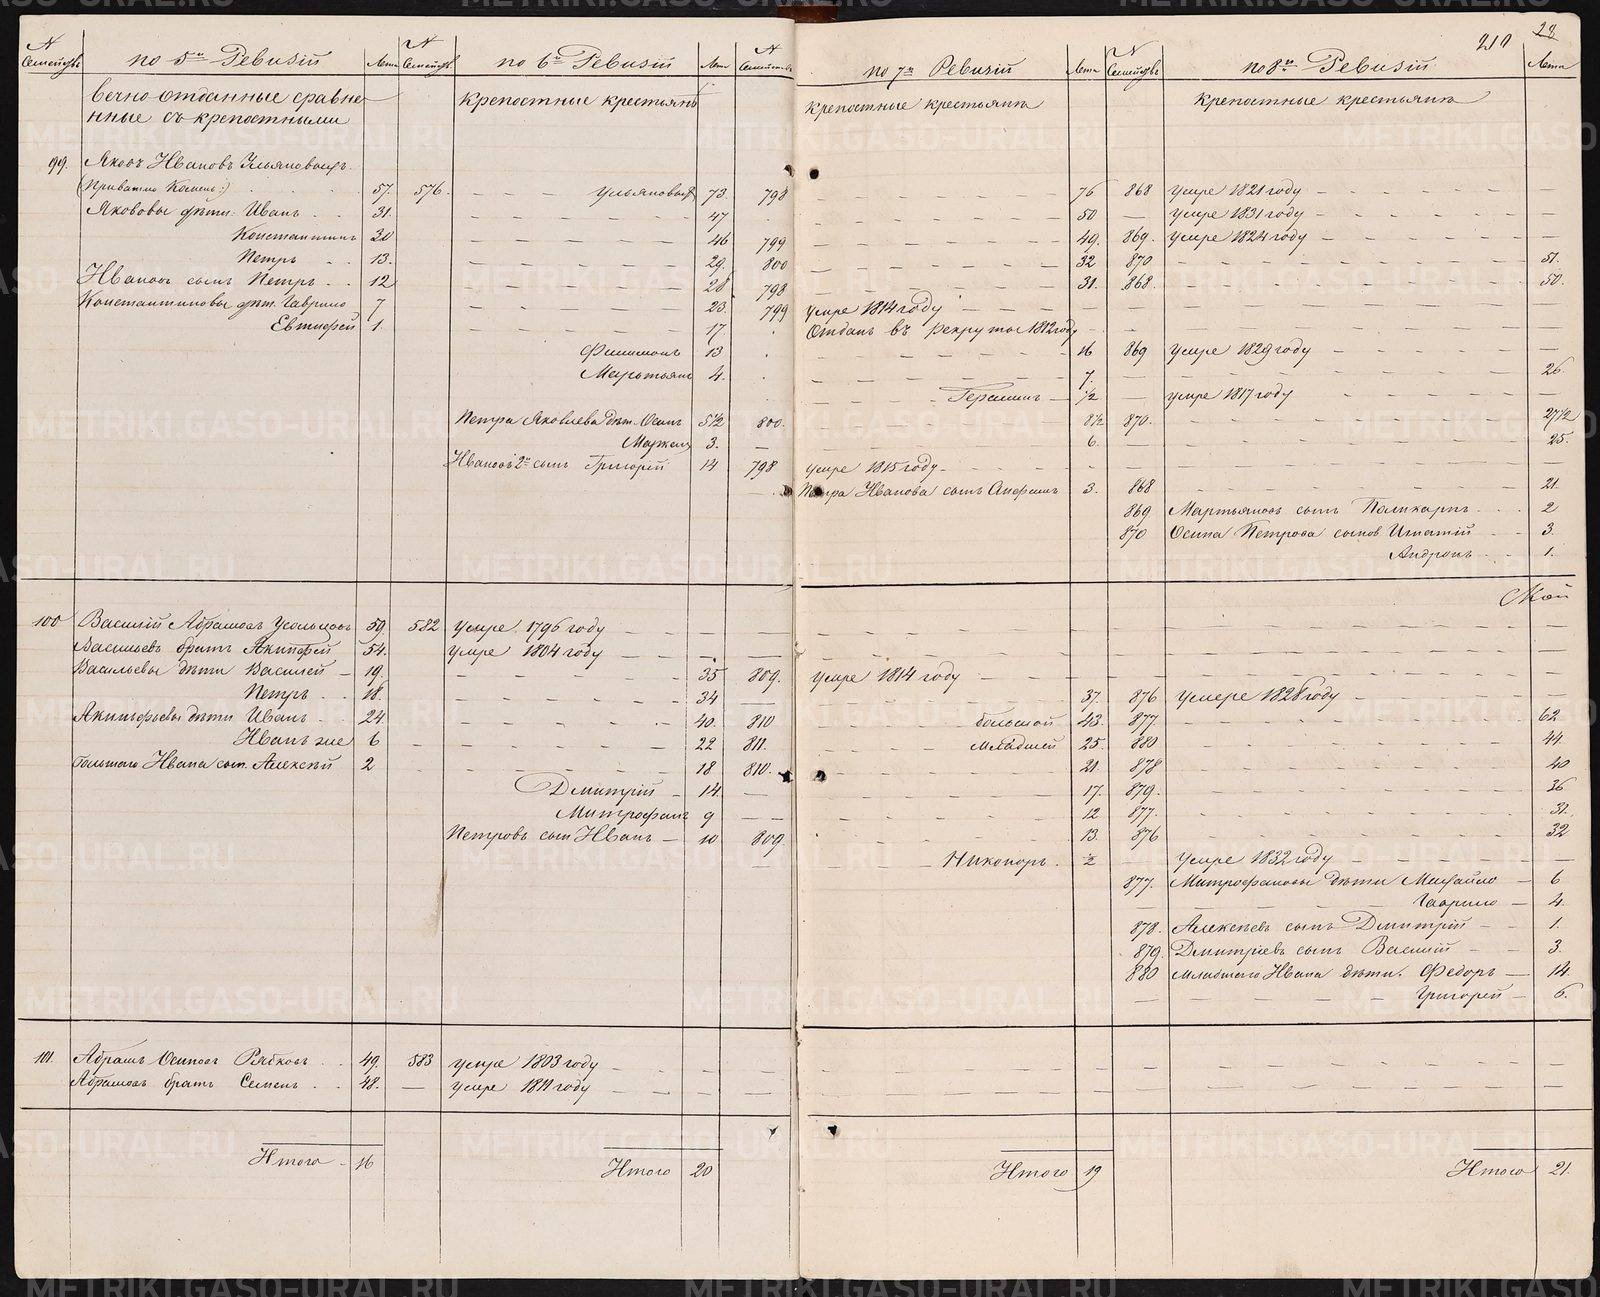 210 28
№ Семействъ по 5й Ревизiи Лета № Семействъ по 6й Ревизiи Лета № Семействъ по 7й Ревизiи Лета № Семействъ по 8й Ревизiи Лета
Вечно отданные сравне- Крепостные крестьянъ Крепостные крестьяна Крепостные крестьяна
нные съ крепостными
99. Яковъ Ивановъ Ульяновыхъ.
57. 576. Ульяновых 73. 798 76 868 умре 1821 году
Якововы дѣти: Иванъ 31. 47 50 умре 1831 году
Константинъ 30 46 799 49. 869. умре 1824 году
Петръ 13. 29. 800 32 870 51.
Ивановъ сынъ Петръ 12 28 798 31. 868. 50.
Константиновы дѣт. Гаврило 7 23. 799 умре 1814 году
Евтифей 1. 17. Отданъ въ рекруты 1812 году
Филимонъ 13 16 869 умре 1829 году
Мартьянъ 4. 7. 26.
Герасимъ ½ умре 1817 году
Петра Яковлева дѣт. Осипъ 5½ 800. 8½ 870. 27½
3. 6. 25.
Ивановъ 2й сынъ Григорiй 14 798 умре 1815 году
Петра Иванова сынъ 3. 868 21.
869 Мартьяновъ сынъ Поликарпъ 2
870 Осипа Петрова сынов Игнатiй 3.
Андронъ 1.
100 Василiй Абрамовъ Усольцовъ 59. 582 умре 1796 году
Васильевъ братъ Акинфей 54. умре 1804 году
Васильевы дѣти Василей 19. 35 809. умре 1814 году
Петръ 18. 34 37. 876 умере 1828 году
Акинфьевы дѣти Иванъ 24 40. 810 большой 43. 877. 62.
Иванъ же 6 22 811. младшей 25. 880 44.
Большаго Ивана сын. Алексѣй 2 18 810. 21. 878 40
Дмитрiй 14. 17. 879. 36
Митрофанъ 9 12 877. 31.
Петровъ сын Иванъ 10 809. 13. 876 32
Никоноръ. ½ умре 1832 году
877. Митрофановы дѣти Михайло 6
Гаврило 4.
878. Алексѣевъ сынъ Дмитрiй 1.
879. Дмитрiевъ сынъ Василiй 3.
880 младшаго Ивана дѣти. Федоръ 14.
Григорей 6.
101. Абрамъ Осиповъ Рябковъ 49. 583 умре 1803 году
Абрамовъ братъ Семенъ 48. умре 1811 году
Итого 16 Итого 20 Итого 19 Итого 21.
METRIKI.GASO-URAL.RU